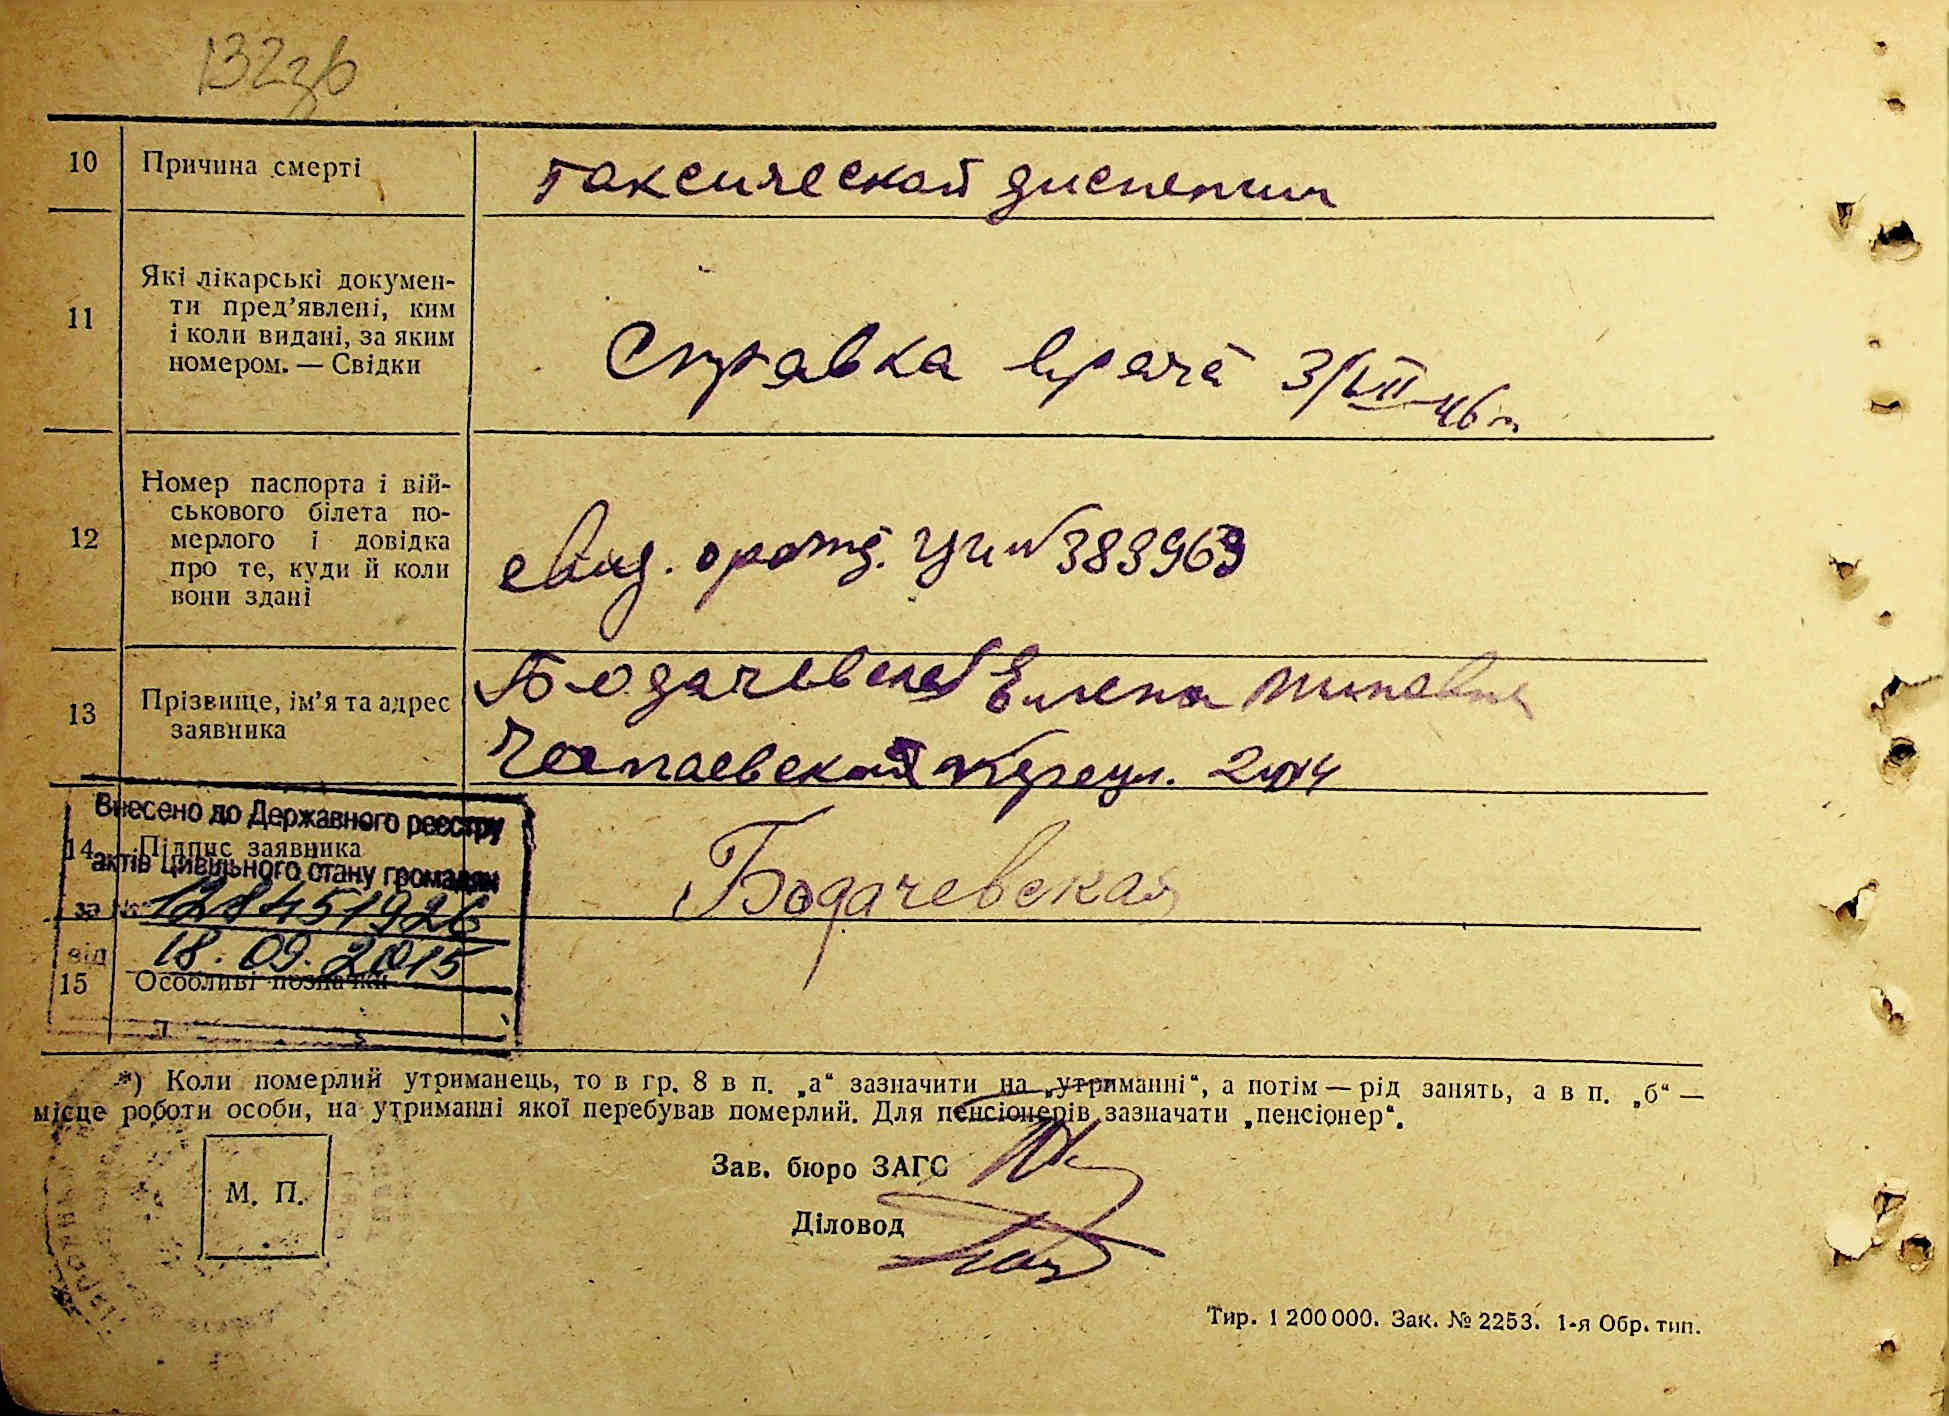 132зв
10 Причина смерті
таксическай диспепсии
11 Які лікарські докумен-
ти пред'явлені, ким
і коли видані, за яким
номером. — Свідки
Справка врача 3/VII-46 г.
12 Номер паспорта і вій-
ськового білета по-
мерлого і довідка
про те, куди й коли
вони здані
свид. о рожд. № 383963
13 Прізвище, ім'я та адрес
заявника
Бодачевская Елена
Чапаевский переул. 2
Внесено до Державного реєстру
14 Підпис заявника
Бодачевская
актів цивільного стану громадян
за № 1284451926
від 18.09.2015
15 Особливі позначки
*) Коли померлий утриманець, то в гр. 8 в п. „а“ зазначити на „утриманні“, а потім — рід занять, а в п. „б“ —
місце роботи особи, на утриманні якої перебував померлий. Для пенсіонерів зазначати „пенсіонер“.
Зав. бюро ЗАГС
М. П.
Діловод
Тир. 1 200 000. Зак. № 2253. 1-я Обр. тип.